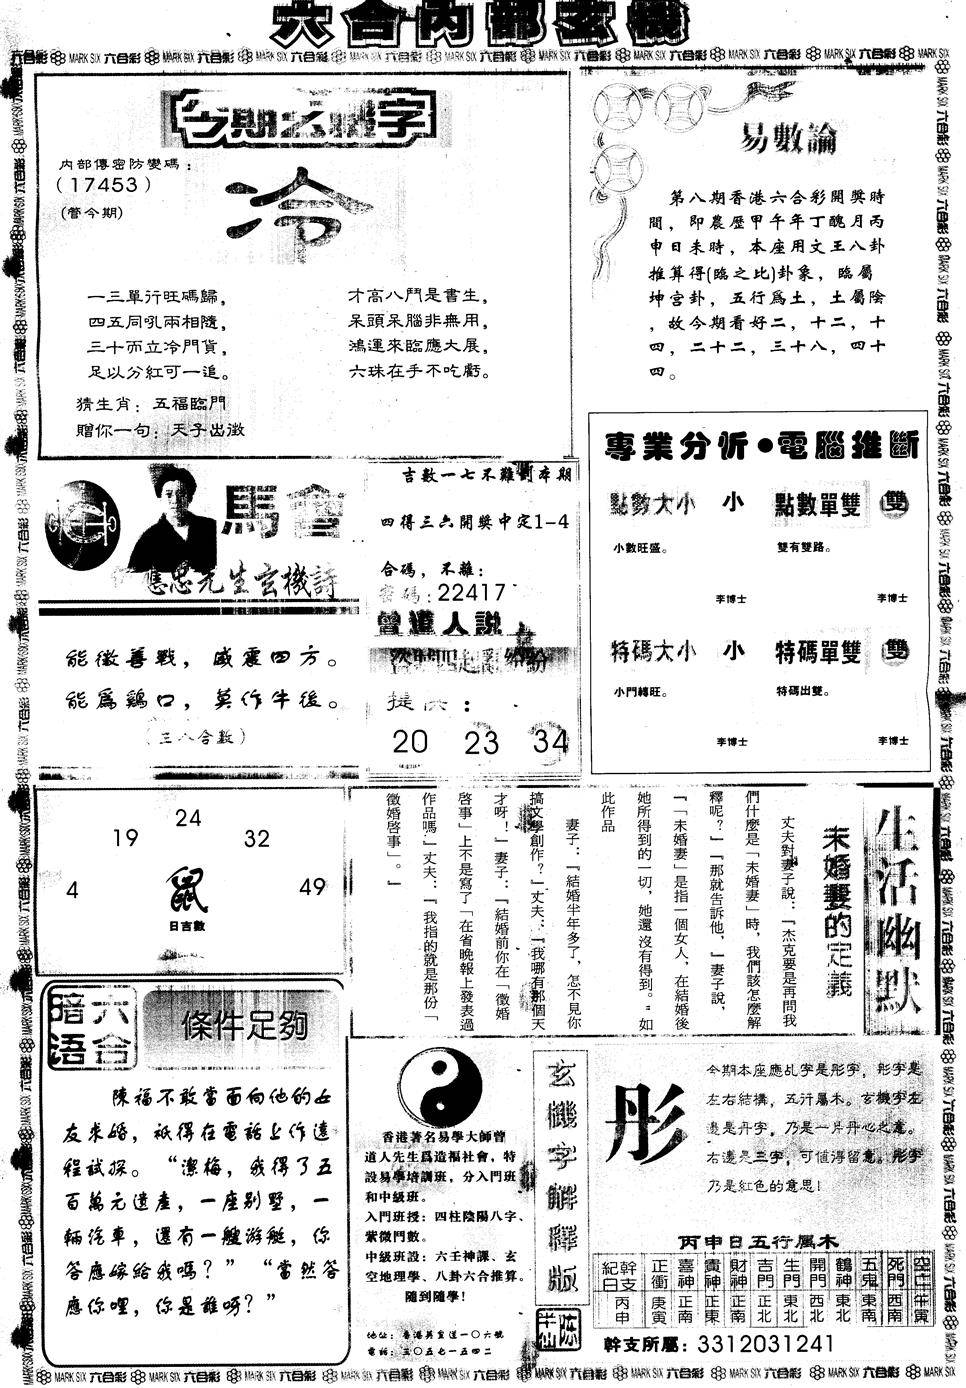 六合內部玄機
今期玄機字
內部傳密防變碼：
（17453）
(管今期)
冷
一三單行旺碼歸，
四五同吼兩相隨，
三十而立冷門貨，
足以分紅可一追。
才高八鬥是書生，
呆頭呆腦非無用，
鴻運來臨應大展，
六珠在手不吃虧。
猜生肖：五福臨門
贈你一句：天子出澂
易數論
第八期香港六合彩開獎時
間，即農歷甲午年丁醜月丙
申日未時，本座用文王八卦
推算得(臨之比)卦象，臨屬
坤宮卦，五行爲土，土屬陰
，故今期看好二，十二，十
四，二十二，三十八，四十
四。
專業分析●電腦推斷
點數大小 小 點數單雙 雙
小數旺盛。 雙有雙路。
李博士 李博士
特碼大小 小 特碼單雙 雙
小門轉旺。 特碼出雙。
李博士 李博士
馬會
先生玄機詩
能徵善戰，威震四方。
能爲鷄口，莫作牛後。
（三八合數）
吉數一七不難創本期
四得三六開獎中定1-4
合碼，不離：
密碼：22417
曾道人説
盜賊四起亂紛紛
提供：
20 23 34
24
19 32
4 49
鼠
日吉數
生活幽默
未婚妻的定義
丈夫對妻子説：「杰克要是再問我
們什麼是「未婚妻」時，我們該怎麼解
釋呢？」「那就告訴他，」妻子説，
「「未婚妻」是指一個女人，在結婚後
她所得到的一切，她還沒有得到。」如
此作品
妻子：「結婚半年多了，怎不見你
搞文學創作？」丈夫：「我哪有那個天
才呀！」妻子：「結婚前你在「徵婚
啓事」上不是寫了「在省晚報上發表過
作品嗎」丈夫：「我指的就是那份「
徵婚啓事」。」
六合暗语
條件足夠
陳福不敢當面向他的女
友求婚，祇得在電話上作遠
程試探。“潔梅，我得了五
百萬元遺産，一座别墅，一
輛汽車，還有一艘游艇，你
答應嫁給我嗎？”“當然答
應你哩，你是誰呀？”
香港著名易學大師曾
道人先生爲造福社會，特
設易學培訓班，分入門班
和中級班。
入門班授：四柱陰陽八字、
紫微鬥數。
中級班設：六壬神課、玄
空地理學、八卦六合推算。
隨到隨學！
地址：香港英皇道一〇六號
電話：三〇五七一五四二
玄機字解釋版
彤
今期本座應乩字是彤字，彤字是
左右結構，五行屬木。玄機字左
邊是丹字，乃是一片丹心之意。
右邊是三字，可值得留意。彤字
乃是紅色的意思！
丙申日五行屬木
紀日 幹支 正衝 喜神 貴神 財神 吉門 生門 開門 鶴神 五鬼 死門 空亡
丙申 庚寅 正南 正南 正北 東北 西北 東北 東南 西南 午寅
幹支所屬：3312031241
MARK SIX 六合彩